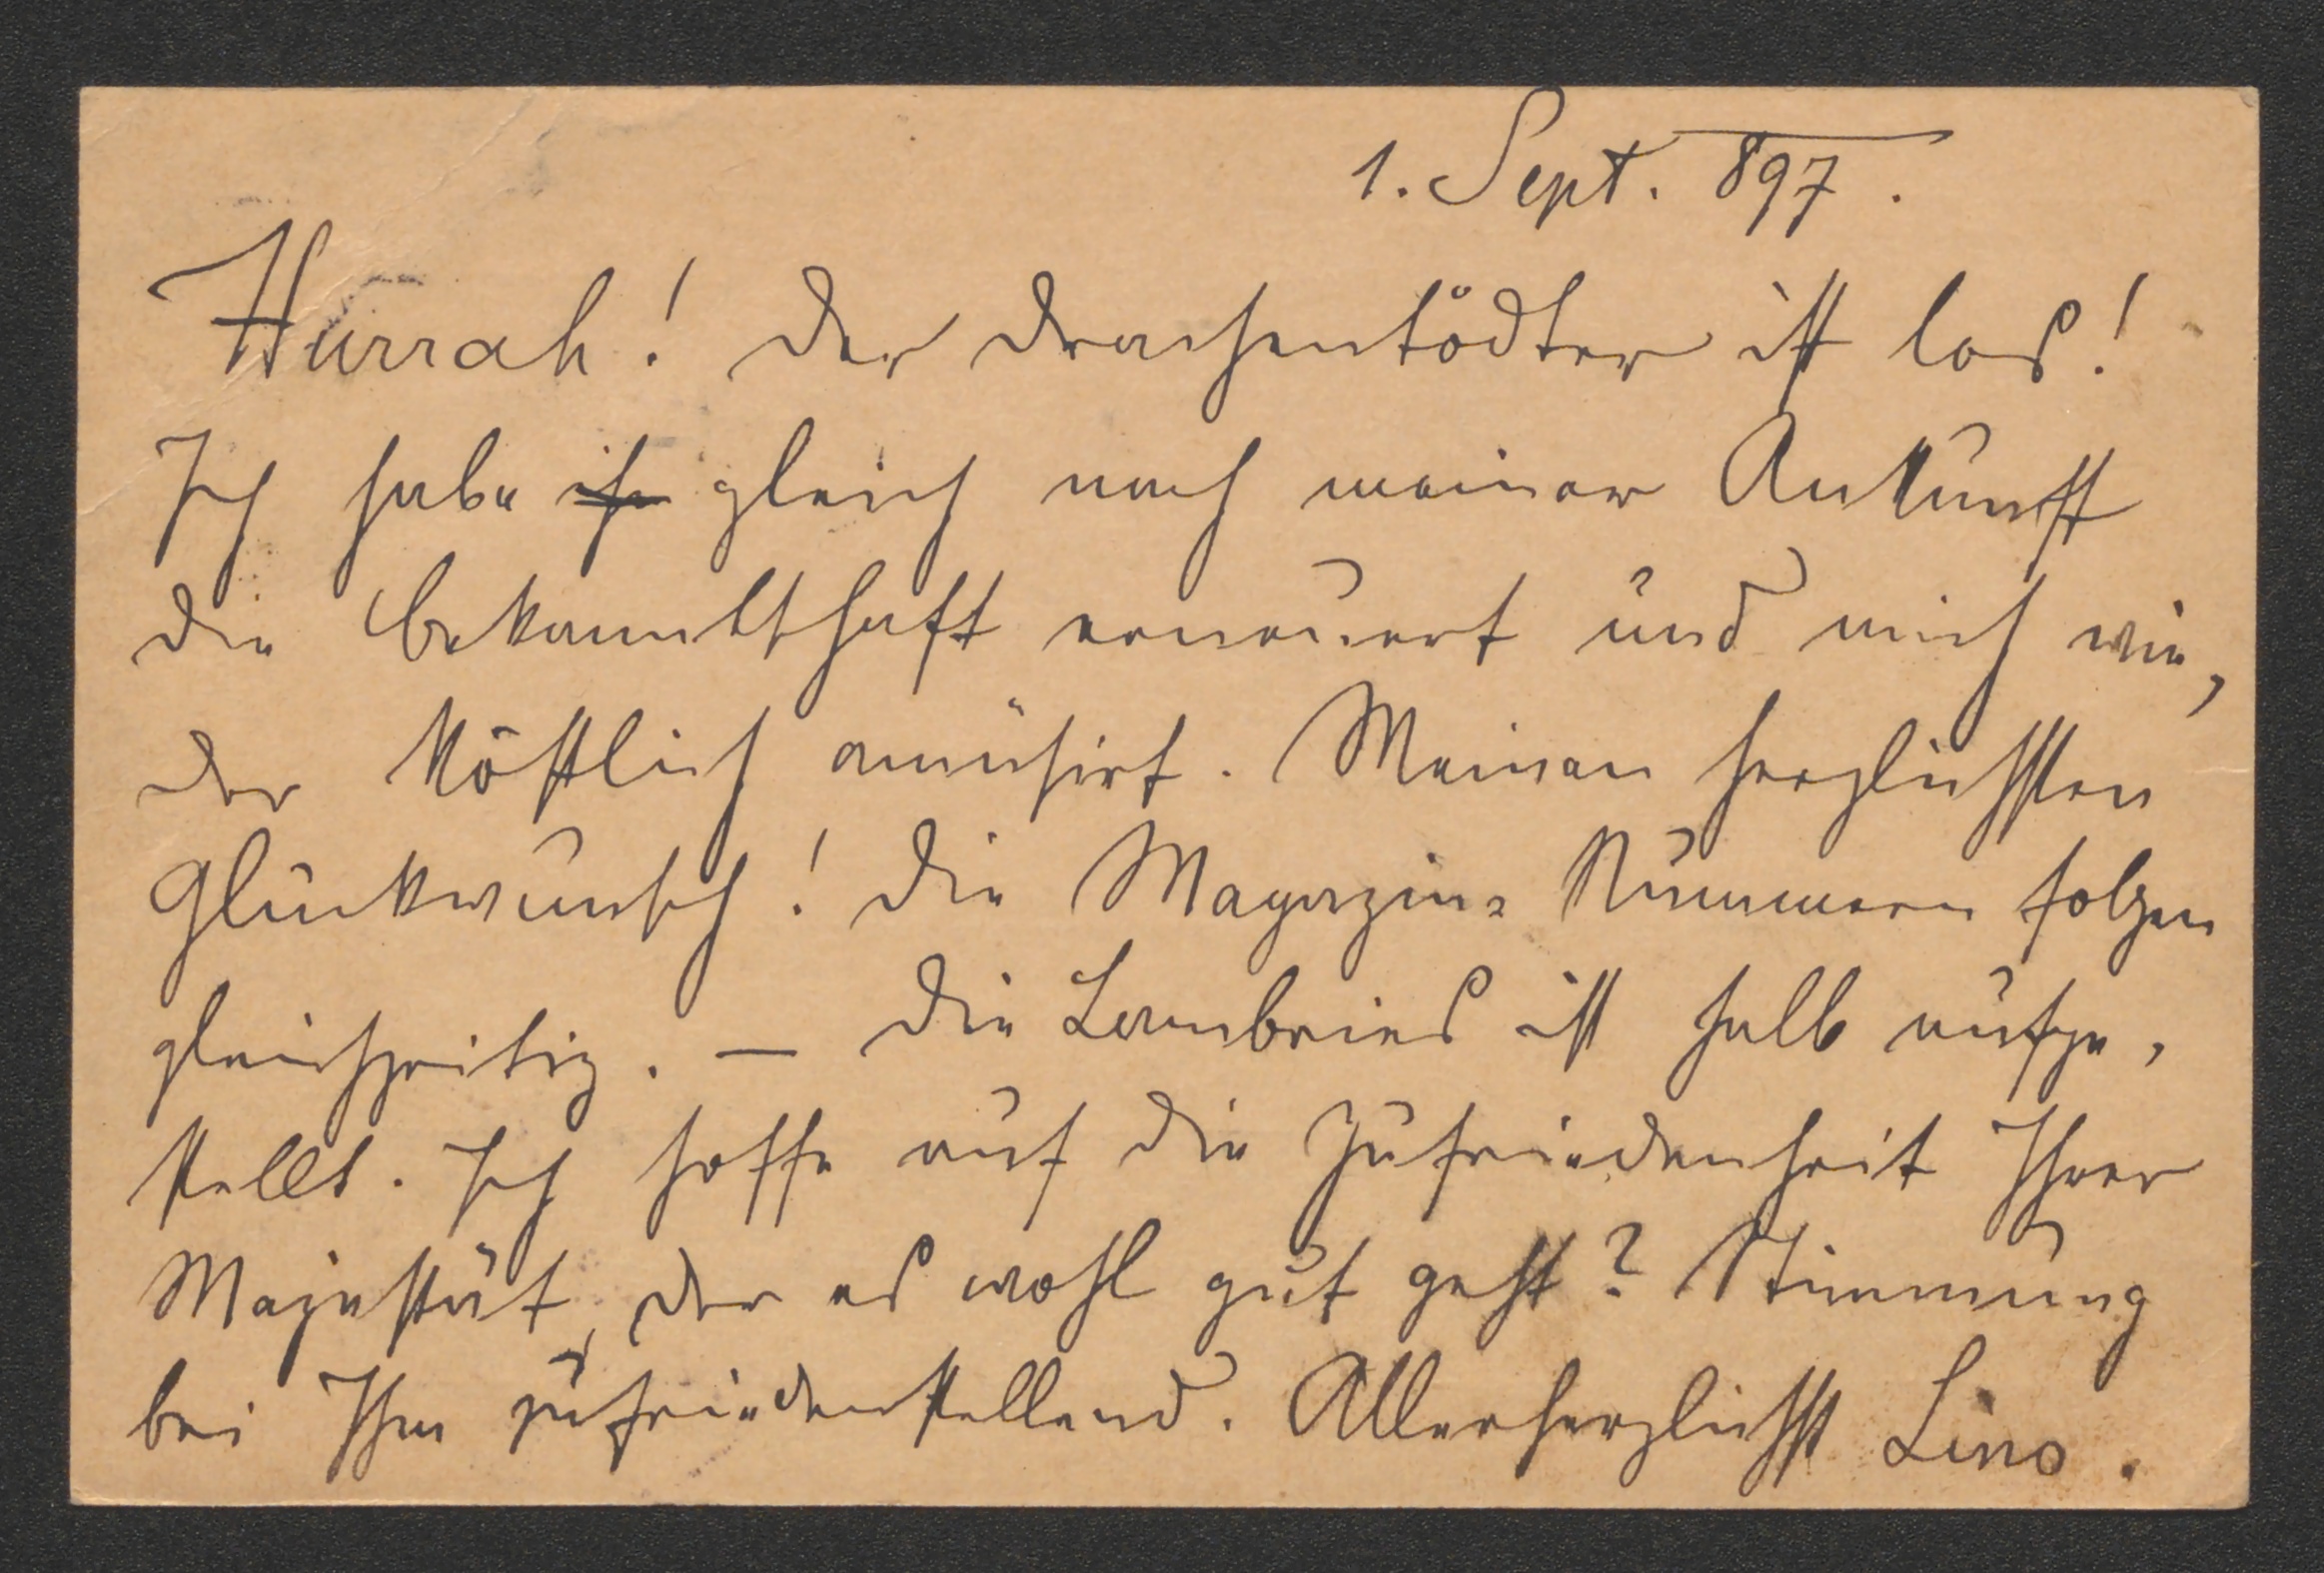 1. Sept. 897.
Hurrah! Der Drachentödter ist los!
Ich habe ihn gleich nach meiner Ankunft
die Bekanntschaft erneuert und mich wie,
der köstlich amüsirt. Meinen herzlichsten
Glückwunsch! Die Magazin- Nummern folgen
gleichzeitig. — Die ist halb aufge,
stellt. Ich hoffe auf die Zufriedenheit Ihrer
Majestät, der es wohl gut geht? Stimmung
bei Ihm zufriedenstellend. Allerherzlichst Lino.